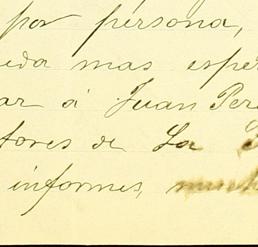 por persona,
mas
ar á Juan Per
tores de La
informes,